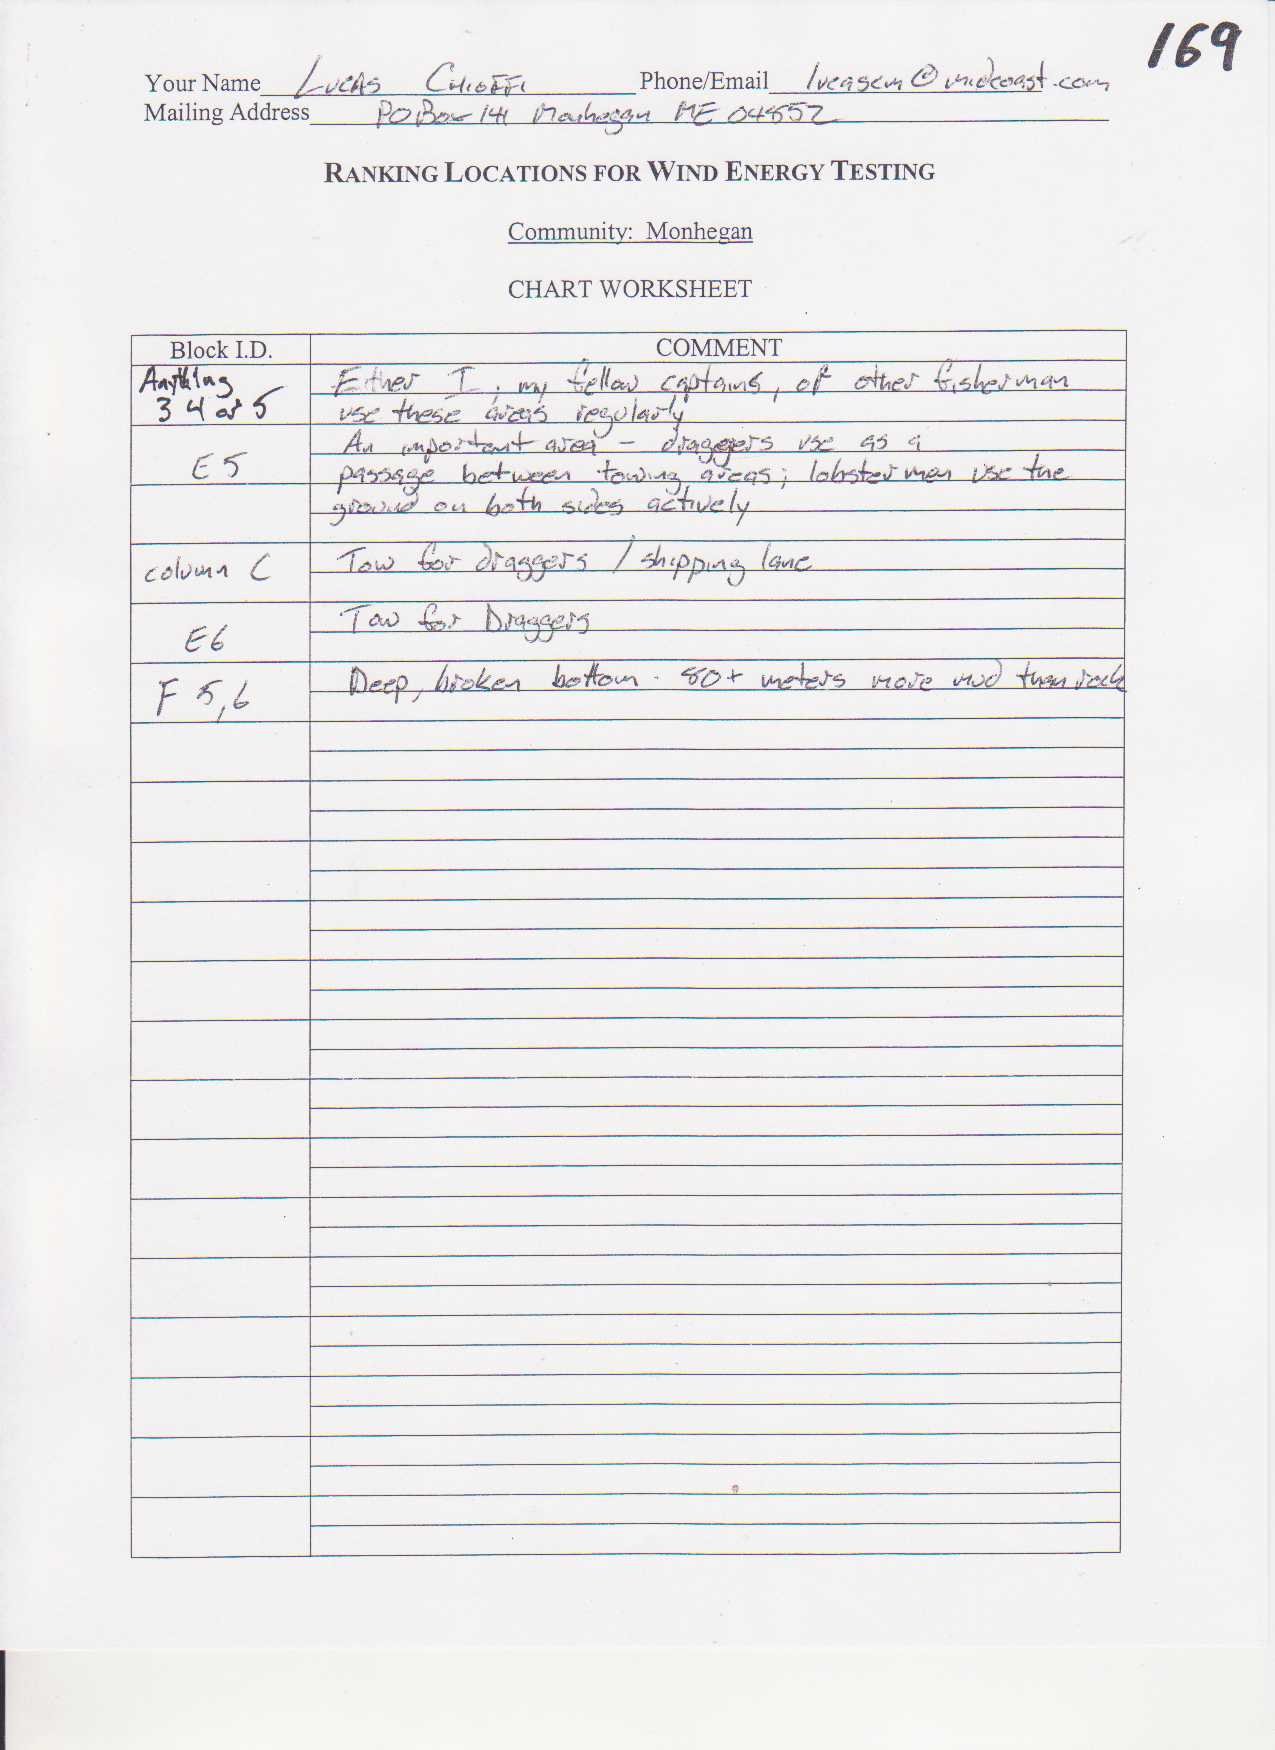 169
Your Name Lucas Chioffi Phone/Email lucascm@midcoast.com
Mailing Address PO Box 141 Monhegan ME 04852
RANKING LOCATIONS FOR WIND ENERGY TESTING
Community: Monhegan
CHART WORKSHEET
Block I.D. COMMENT
Anything Either I, my fellow captains, or other fisherman
3 4 or 5 use these areas regularly
An important area - draggers use as a
E5 passage between towing areas; lobstermen use the
ground on both sides actively
column C Tow for draggers / shipping lane
E6 Tow for Draggers
F 5,6 Deep, broken bottom. 80+ meters more mud than rock